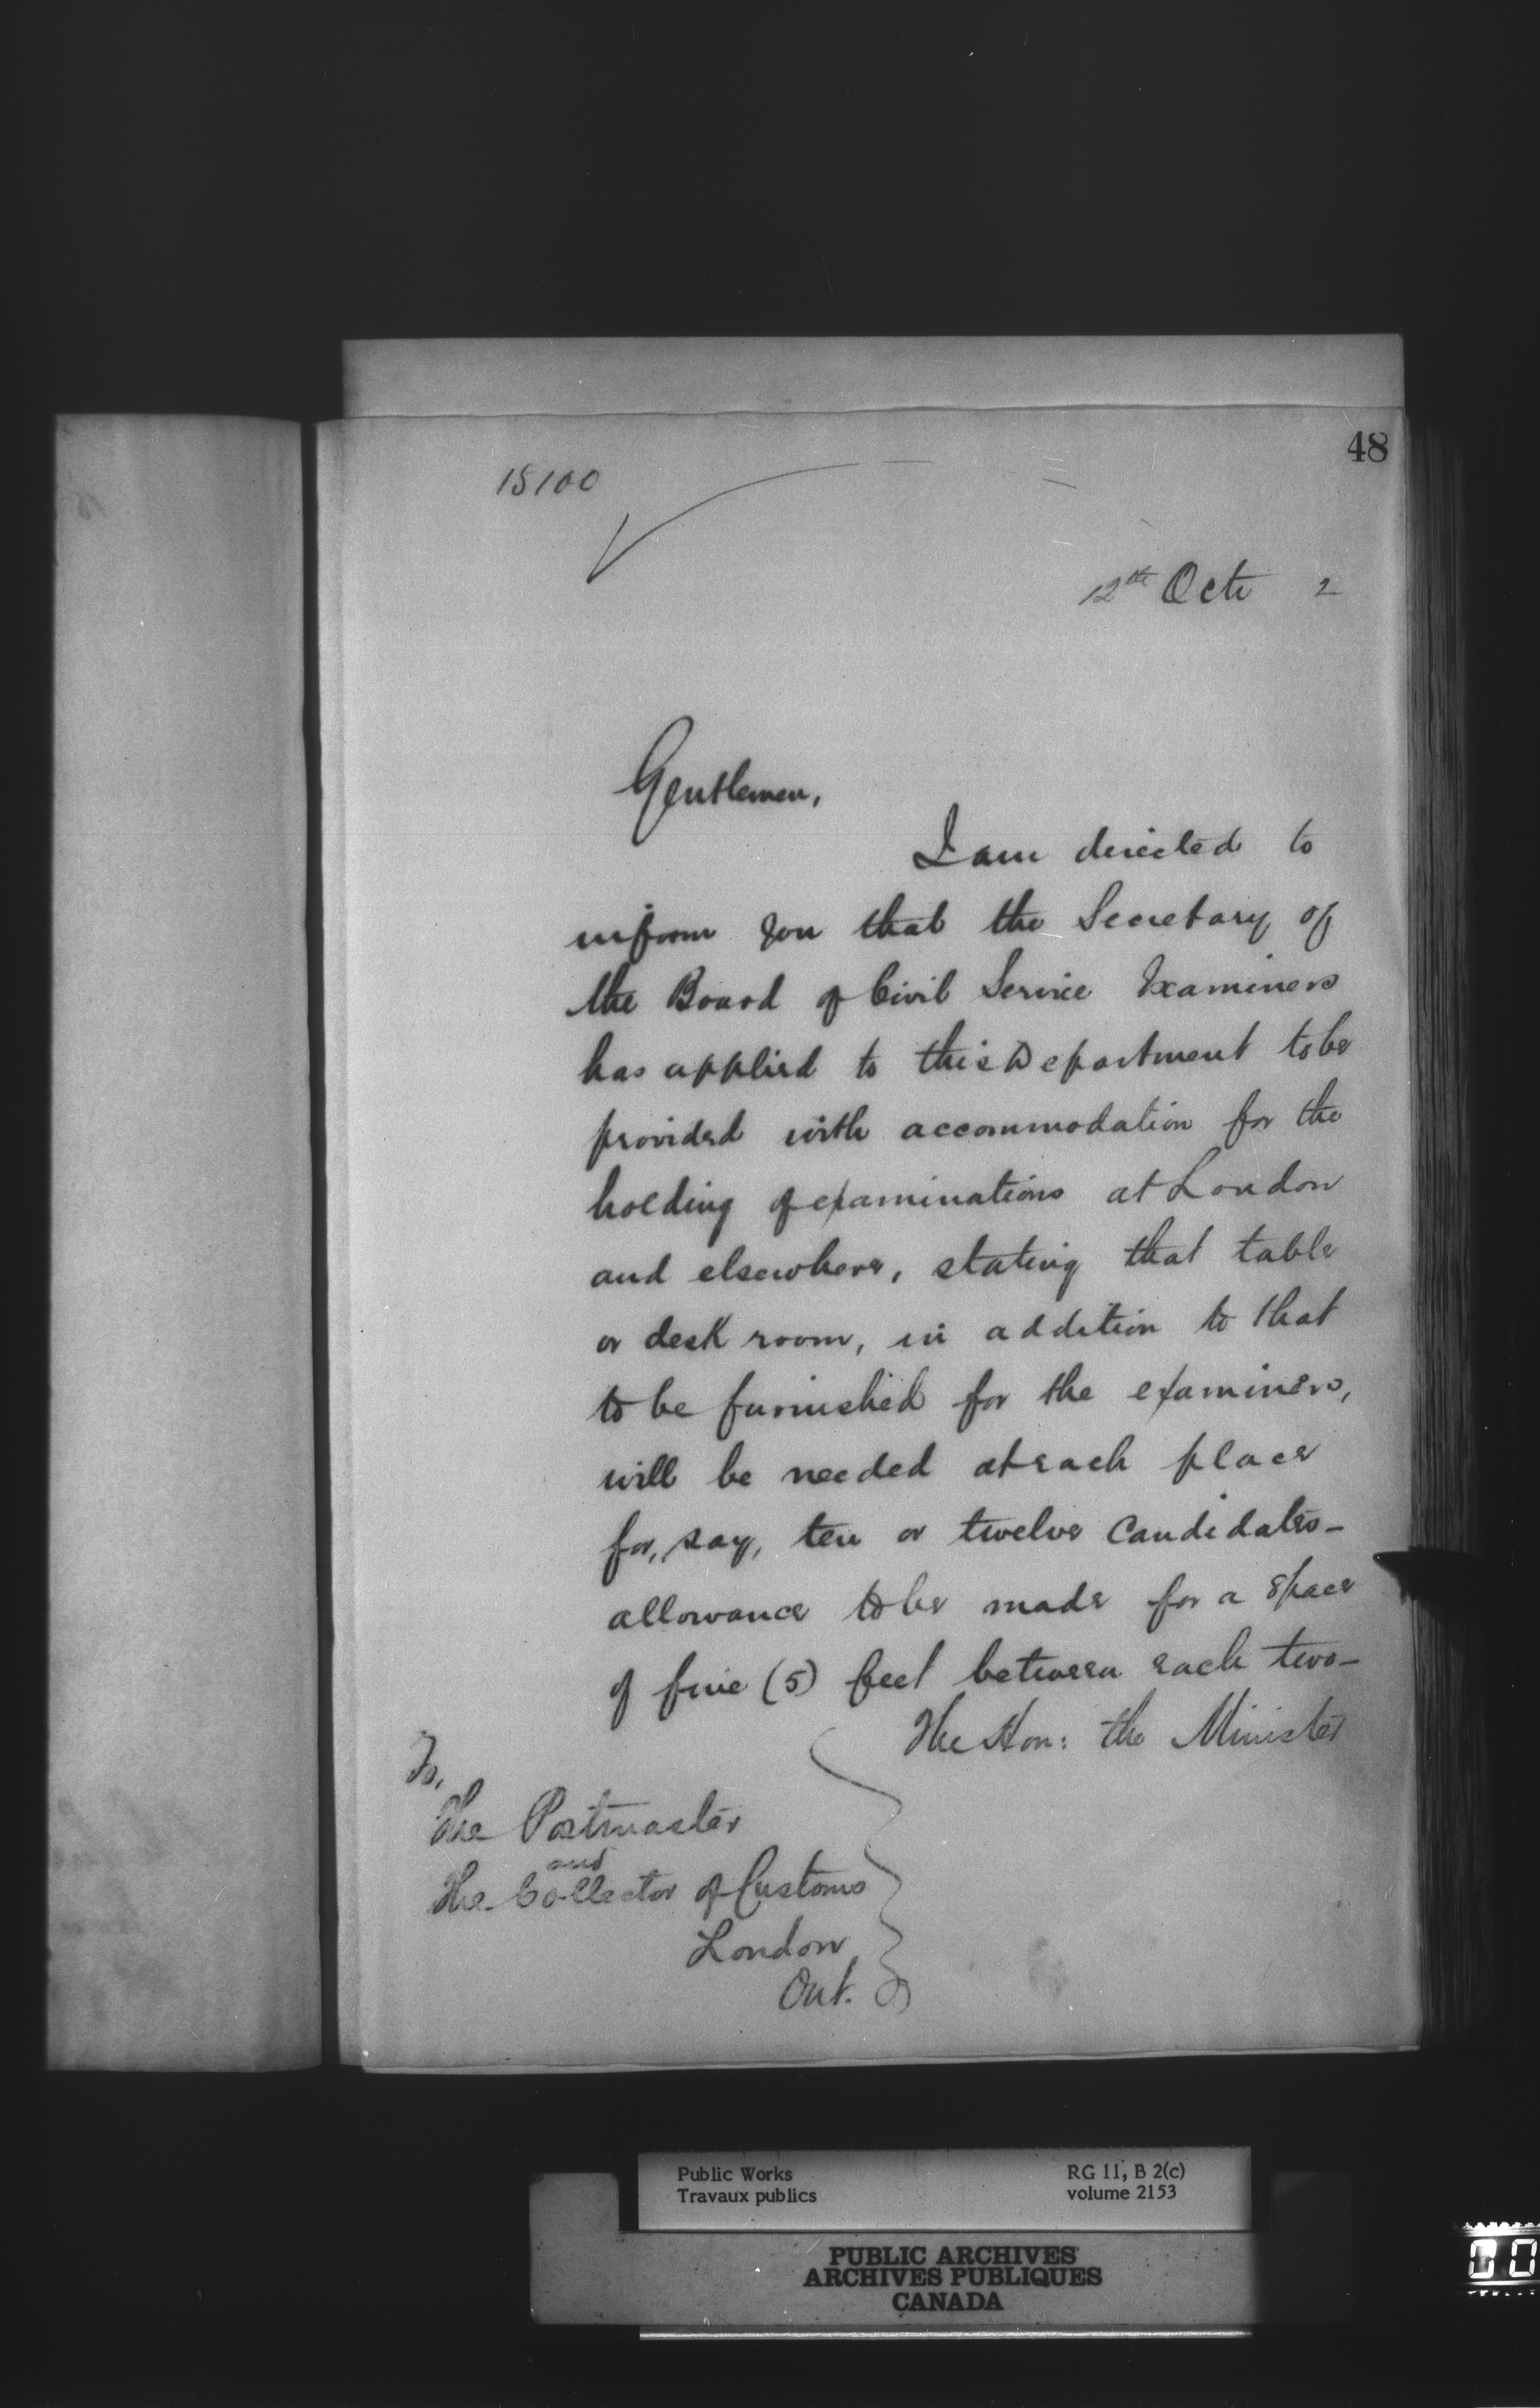 48
15100
12th Octr 2
Gentlemen,
I am directed to
inform you that the Secretary of
the Board of Civil Service Examiners
has applied to this Department to be
provided with accommodation for the
holding of examinations at London
and elsewhere, stating that table
or desk room, in addition to that
to be furnished for the examiners,
will be needed at each place
for, say, ten or twelve candidates-
allowance to be made for a space
of five (5) feet between each two-
The Hon: the Minister
To,
The Postmaster
and
The Collector of Customs
London
Ont.
Public Works
Travaux publics
RG 11, B 2(c)
volume 2153
PUBLIC ARCHIVES
ARCHIVES PUBLIQUES
CANADA